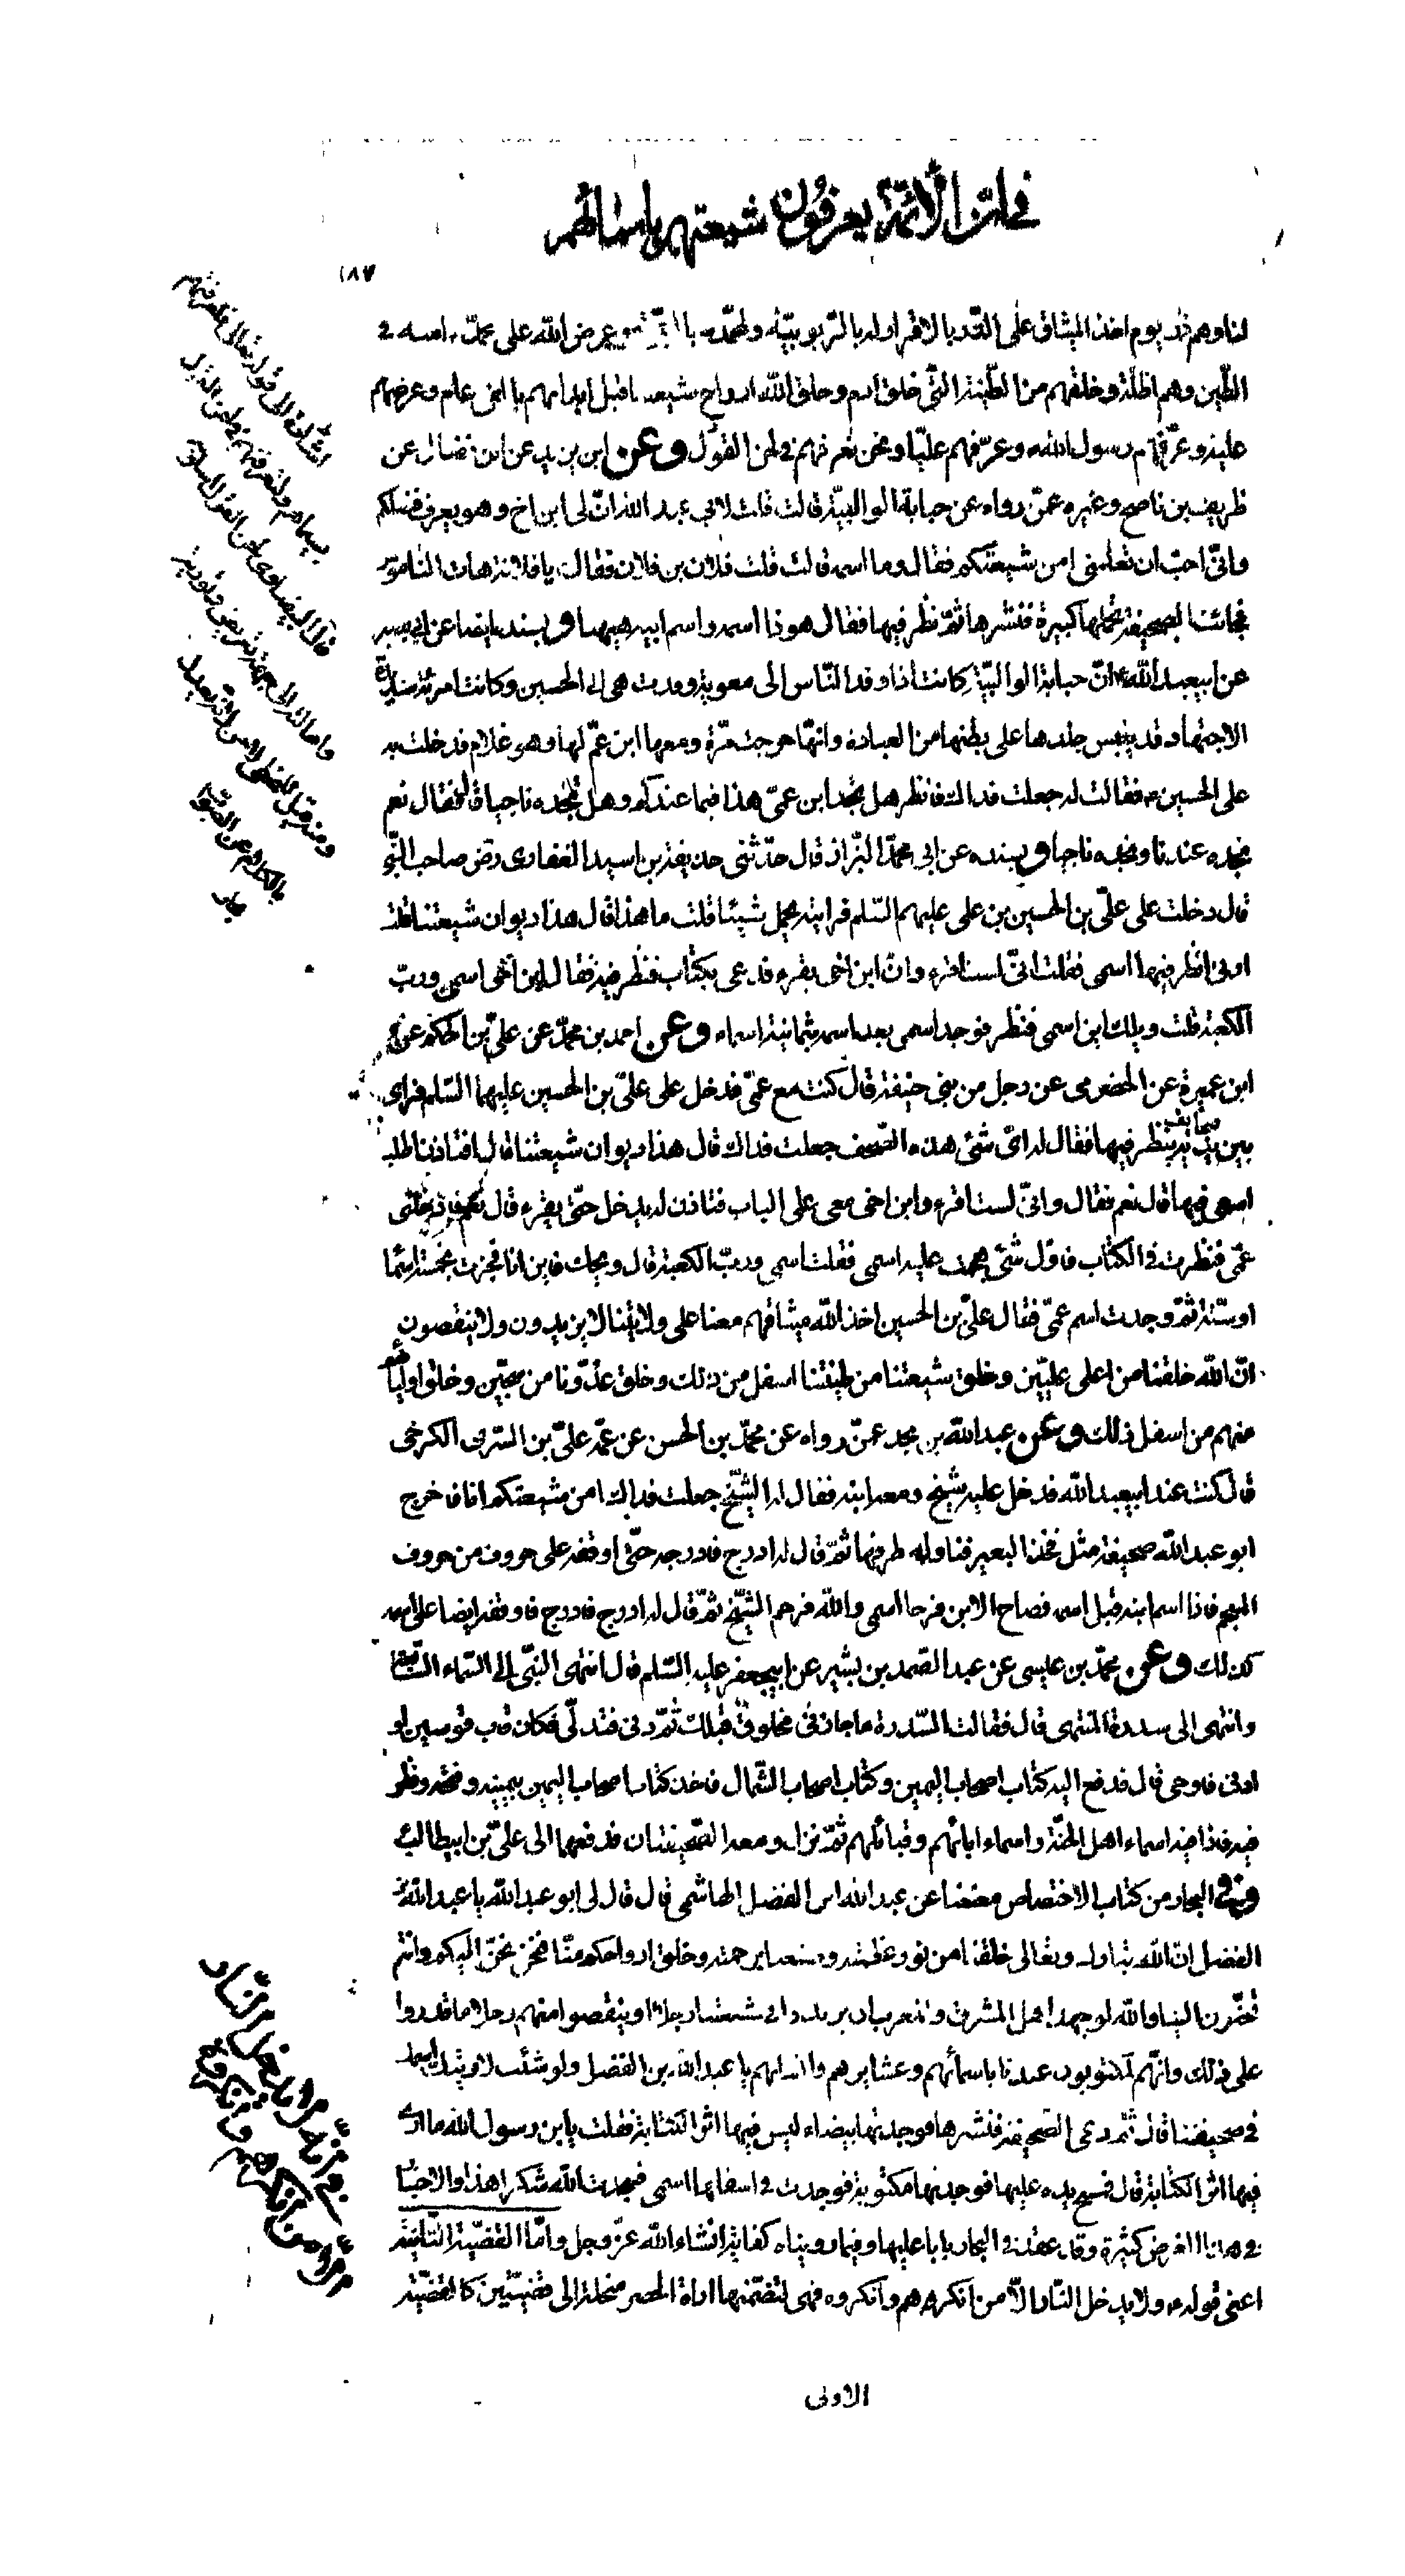 في ان الأئمة يعرفون شيعتهم باسمائهم
١٨٧
لنا وهم ذر يوم اخذ الميثاق على الذر بالاقرار له بالربوبيته ولمحمد بالنبوة وعرض الله على محمد امته في
الطين وهم اظلة وخلقهم من الطينة التي خلق ادم وخلق الله ارواح شيعتنا قبل ابدانهم بالفى عام وعرضهم
عليه وعرفهم رسول الله وعرفهم عليا ونحن نعرفهم في لحن القول وعن ابن يزيد عن ابن فضال عن
ظريف بن ناصح وغيره عمن رواه عن حبابة الوالبية قالت قلت لابي عبد الله ان لى ابن اخ وهو يعرف فضلكم
وانى احب ان تعلمنى امن شيعتكم فقال وما اسمه قالت قلت فلان بن فلان فقال يا فلانة هات الناموس
فجائت بصحيفة تحملها كبيرة فنشرها ثم نظر فيها فقال هوذا اسمه واسم ابيه هيهنا وبسنده ايضا عن ابي بصير
عن ابيعبد الله ان حبابة الوالبية كانت اذا وفد الناس الى معوية وفدت هى الى الحسين وكانت امرئة شديدة
الاجتهاد قد يبس جلدها على بطنها من العبادة وانها خرجت مرة ومعها ابن عم لها وهو غلام فدخلت به
على الحسين فقالت له جعلت فداك فانظر هل تجد ابن عمى هذا فيما عندكم وهل تجده ناجيا قال فقال نعم
نجده عندنا ونجده ناجيا وبسنده عن ابى محمد البزاز قال حدثنى حذيفة بن اسيد الغفارى رض صاحب النبي
قال دخلت على على بن الحسين بن على عليهم السلم فرايته يحمل شيئا قلت ما هذا قال هذا ديوان شيعتنا قلت
ارنى انظر فيها اسمى فقلت انى لست اقرء وان ابن اخى يقرء فدعى بكتاب فنظر فيه فقال ابن اخى اسمى ورب
الكعبة قلت ويلك اين اسمى فنظر فوجد اسمى بعد اسمه بثمانية اسماء وعن احمد بن محمد عن على بن الحكم عن
ابن عميرة عن الحضرمى عن رجل من بنى حنيفة قال كنت مع عمى فدخل على على بن الحسين عليهما السلم فراى
بين يديه صحايف ينظر فيها فقال له اى شئ هذه الصحف جعلت فداك قال هذا ديوان شيعتنا قال افتاذن اطلب
اسمى فيها قال نعم فقال وانى لست اقرء وابن اخى معى على الباب فتاذن له يدخل حتى يقرء قال نعم فادخلنى
عمى فنظرت في الكتاب فاول شئ هجمت عليه اسمى فقلت اسمى ورب الكعبة قال ويحك فاين انا فجزت بخمسة اسماء
او ستة ثم وجدت اسم عمى فقال على بن الحسين اخذ الله ميثاقهم معنا على ولايتنا لا يزيدون ولا ينقصون
ان الله خلقنا من اعلى عليين وخلق شيعتنا من طينتنا اسفل من ذلك وخلق عدونا من سجين وخلق اوليائهم
منهم من اسفل ذلك وعن عبد الله بن محمد عمن رواه عن محمد بن الحسن عن عمه على بن السرى الكرخى
قال كنت عند ابيعبد الله فدخل عليه شيخ ومعه ابنه فقال له الشيخ جعلت فداك امن شيعتكم انا فاخرج
ابو عبد الله صحيفة مثل فخذ البعير فناوله طرفها ثم قال له ادرج فادرجه حتى اوقفه على حروف من حروف
المعجم فاذا اسم ابنه قبل اسمه فصاح الابن فرحا اسمى والله فرحم الشيخ ثم قال له ادرج فادرج فاوقفه ايضا على اسمه
كذلك وعن محمد بن عيسى عن عبد الصمد بن بشير عن ابيجعفر عليه السلم قال انتهى النبى الى السماء السابعة
وانتهى الى سدرة المنتهى قال فقالت السدرة ما جازنى مخلوق قبلك ثم دنى فتدلى فكان قاب قوسين او
ادنى فاوحى قال فدفع اليه كتاب اصحاب اليمين وكتاب اصحاب الشمال فاخذ كتاب اصحاب اليمين بيمينه وفتحه ونظر
فيه فاذا فيه اسماء اهل الجنة واسماء ابائهم وقبائلهم ثم نزل ومعه الصحيفتان فدفعهما الى على بن ابيطالب
وفي البحار من كتاب الاختصاص معنعنا عن عبد الله بن الفضل الهاشمى قال قال لى ابو عبد الله يا عبد الله بن
الفضل ان الله تبارك وتعالى خلقنا من نور عظمته وصنعنا برحمته وخلق ارواحكم منا فنحن نحن اليكم وانتم
تحنون الينا والله لو جهد اهل المشرق والمغرب ان يزيدوا في شيعتنا رجلا او ينقصوا منهم رجلا ما قدروا
على ذلك وانهم لمكتوبون عندنا باسمائهم وعشايرهم وانسابهم يا عبد الله بن الفضل ولو شئت لاريتك اسمك
في صحيفتنا قال ثم دعى الصحيفة فنشرها فوجدتها بيضاء ليس فيها اثر الكتابة فقلت يابن رسول الله ما ارى
فيها اثر الكتابة قال فمسح يده عليها فوجدتها مكتوبة فوجدت في اسفلها اسمى فسجدت لله شكرا هذا والاخبار
في هذا الغرض كثيرة وقد عقد في البحار بابا عليها وفيما رويناه كفاية انشاء الله عز وجل واما القضية الثانية
اعنى قوله ولا يدخل النار الا من انكرهم وانكروه فهى لتضمنها اداة الحصر منحلة الى قضيتين كالقضية
الاولى
اشارة الى قوله تعالى فلعرفتهم
بسيماهم ولتعرفنهم في لحن القول
قال البيضاوى لحن القول اسلوبه
واما لته الى جهة تعريض وتورية
ومنه قيل للمخطى لاحن لانه يعدل
بالكلام عن الصواب
بحار
في انه لا يدخل النار
الا من انكرهم وانكروه